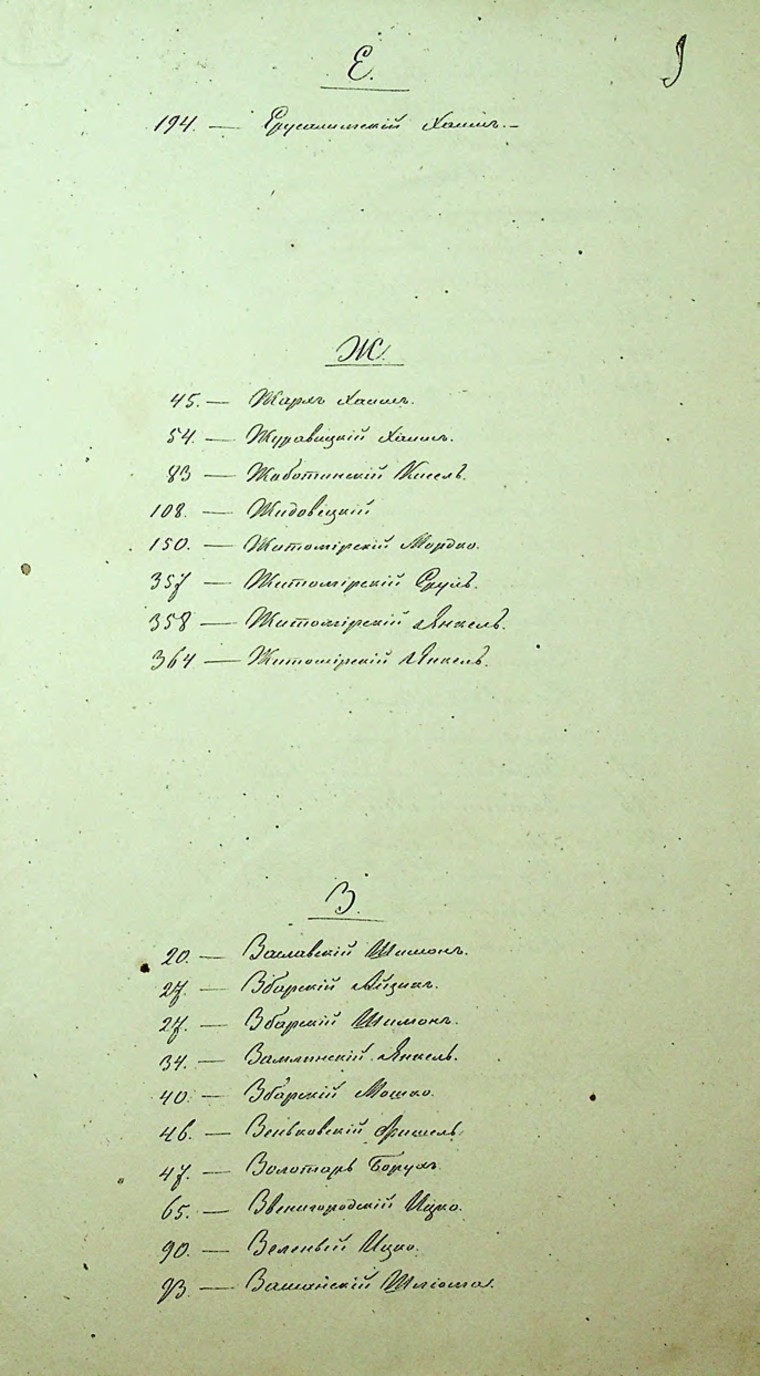 9
Е.
194. — Ерусалимскій Хаимъ. –
Ж.
45. — Жаръ Хаимъ.
54. — Журавицкій Хаимъ.
83 — Жаботинскій Кисель.
108. — Жидовецкій
150. — Житомірскій Мордко.
357 — Житомірскій Сруль.
358 — Житомірскій Янкель.
364 — Житомірскій Янкель.
З.
20. — Заславскій Шимонъ.
27. — Збарскій Айзикъ.
27. — Збарскій Шимонъ.
34. — Янкель.
40. — Збарскій Мошко.
46. — Зеньковскій Фишель
47. — Золотарь Борухъ.
65. — Звенигородскій Ицко.
90. — Зеленый Ицко.
93. — Шліома.